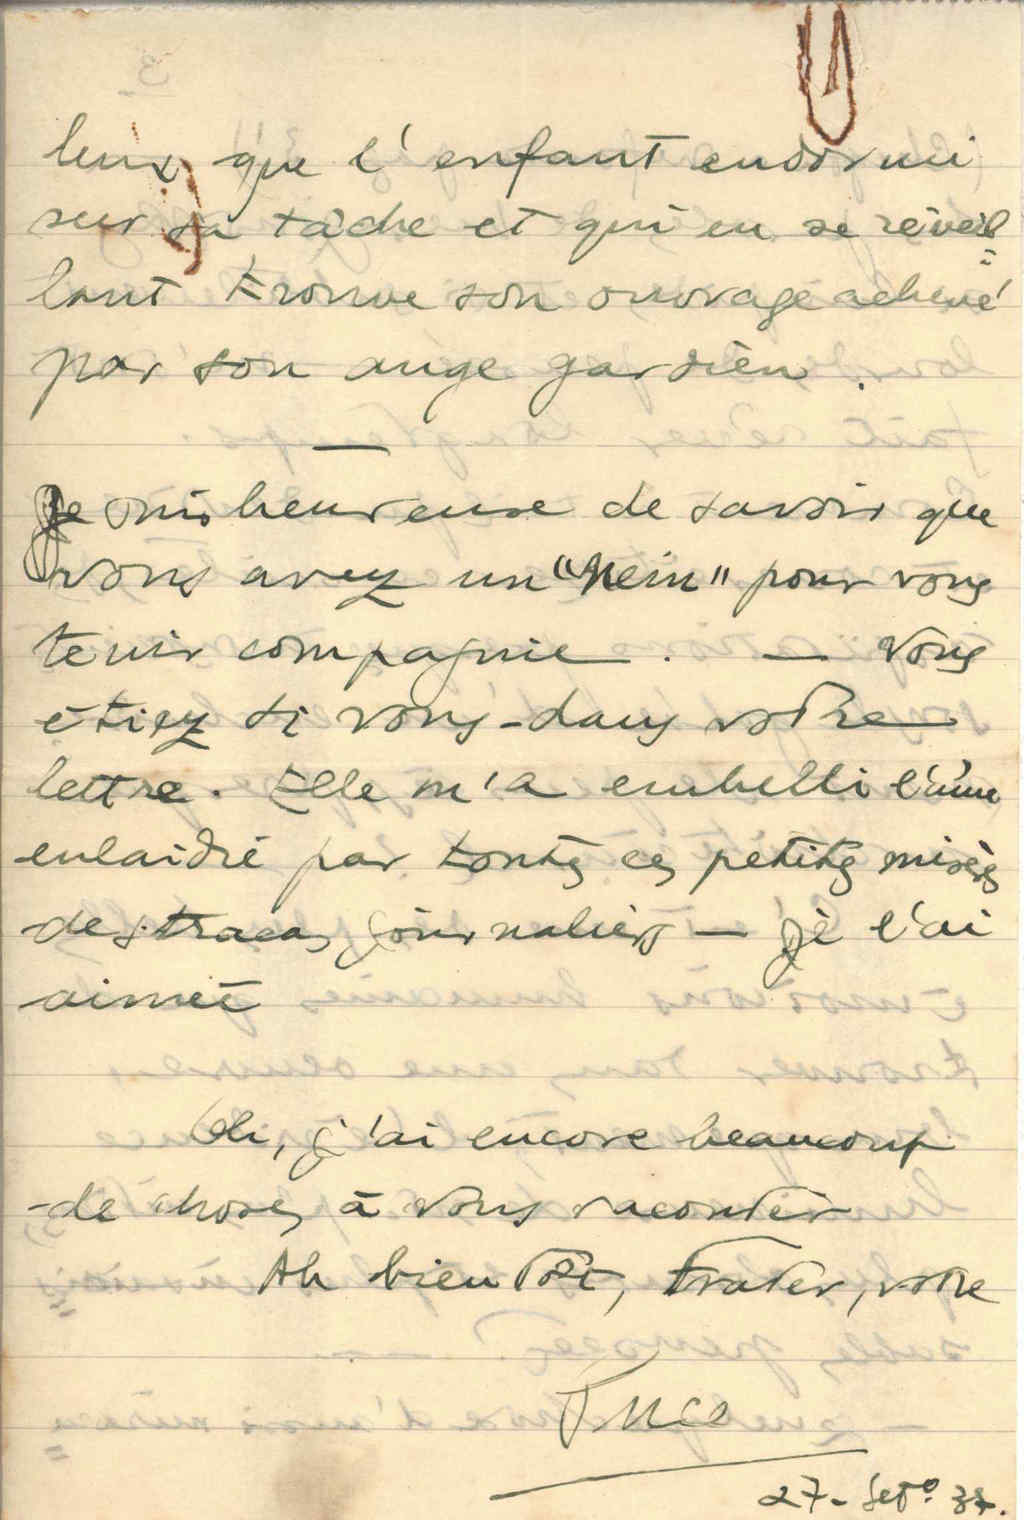 leux que l'enfant endormi
sur sa tâche et qui en se réveil=
lant trouve son ouvrage achevé
par son ange gardien.
—
Je suis heureuse de savoir que
vous avez un "Nein" pour vous
tenir compagnie. — Vous
étiez si vous-dans votre
lettre. Elle m'a embelli l'âme
enlaidie par toutes ces petites misères
des tracas journaliers — je l'ai
aimée
Oh, j'ai encore beaucoup
de choses à vous raconter
Ah bientôt, Frater, votre
27- Set° 37.